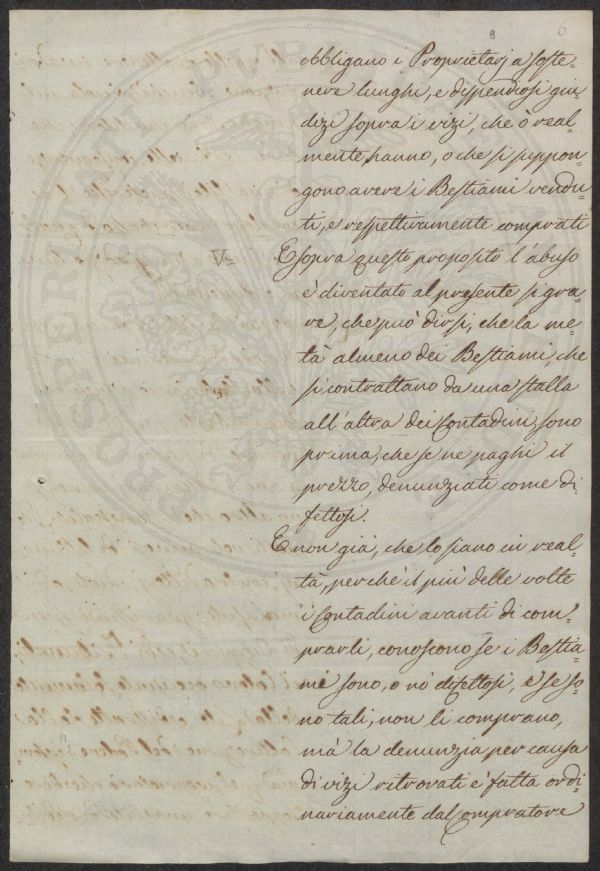 8
6
obbligano i Proprietarj a soste=
nere lunghi, e dispendiosi giu=
dizi sopra i vizi, che ò real=
mente, hanno, o che si suppon=
gono avere i Bestiami vendu=
ti, e respettivamente comprati
V= E sopra questo proposito l'abuso
è diventato al presente si gra=
ve, che può dirsi, che la me=
tà almeno dei Bestiami, che
si contrattano da una stalla
all'altra dei Contadini, sono
prima, che se ne paghi il
prezzo, denunziati come di=
fettosi.
E non già, che lo siano in real=
tà, perchè il più delle volte
i Contadini avanti di com=
prarli, conoscono se i Bestia=
mi sono, o nò difettosi, e se so=
no tali, non li comprano,
mà la denunzia per causa
di vizi ritrovati è fatta ordi=
nariamente dal Compratore
PROSPERITATI PUB